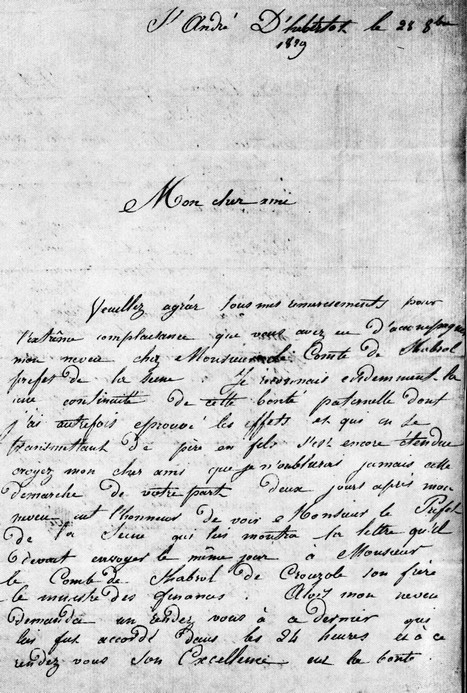 St André D'hebertot le 28 8bre
1829
Mon cher ami
Veuillez agréer tous mes remerciements pour
l'extrême complaisance que vous avez eu d'accompagner
mon neveu chez Monsieur le Comte de Chabrol
prefet de la Seine. Je reconnais evidemment la
une continuité de cette bonté paternelle dont
j'ai autrefois eprouvé les effets et qui en se
transmettant de père en fils s'est encore étendue
croyez mon cher ami que je n'oublierai jamais cette
demarche de votre part deux jours après mon
neveu eut l'honneur de voir Monsieur le Prefet
de la Seine qui lui montra la lettre qu'il
devait envoyer le même jour a Monsieur
le Comte de Chabrol de Crouzole son frère
le ministre des finances. mon neveu
demanda un rendez vous à ce dernier qui
lui fut accordé dans les 24 heures et à ce
rendez vous Son Excellence eut la bonté